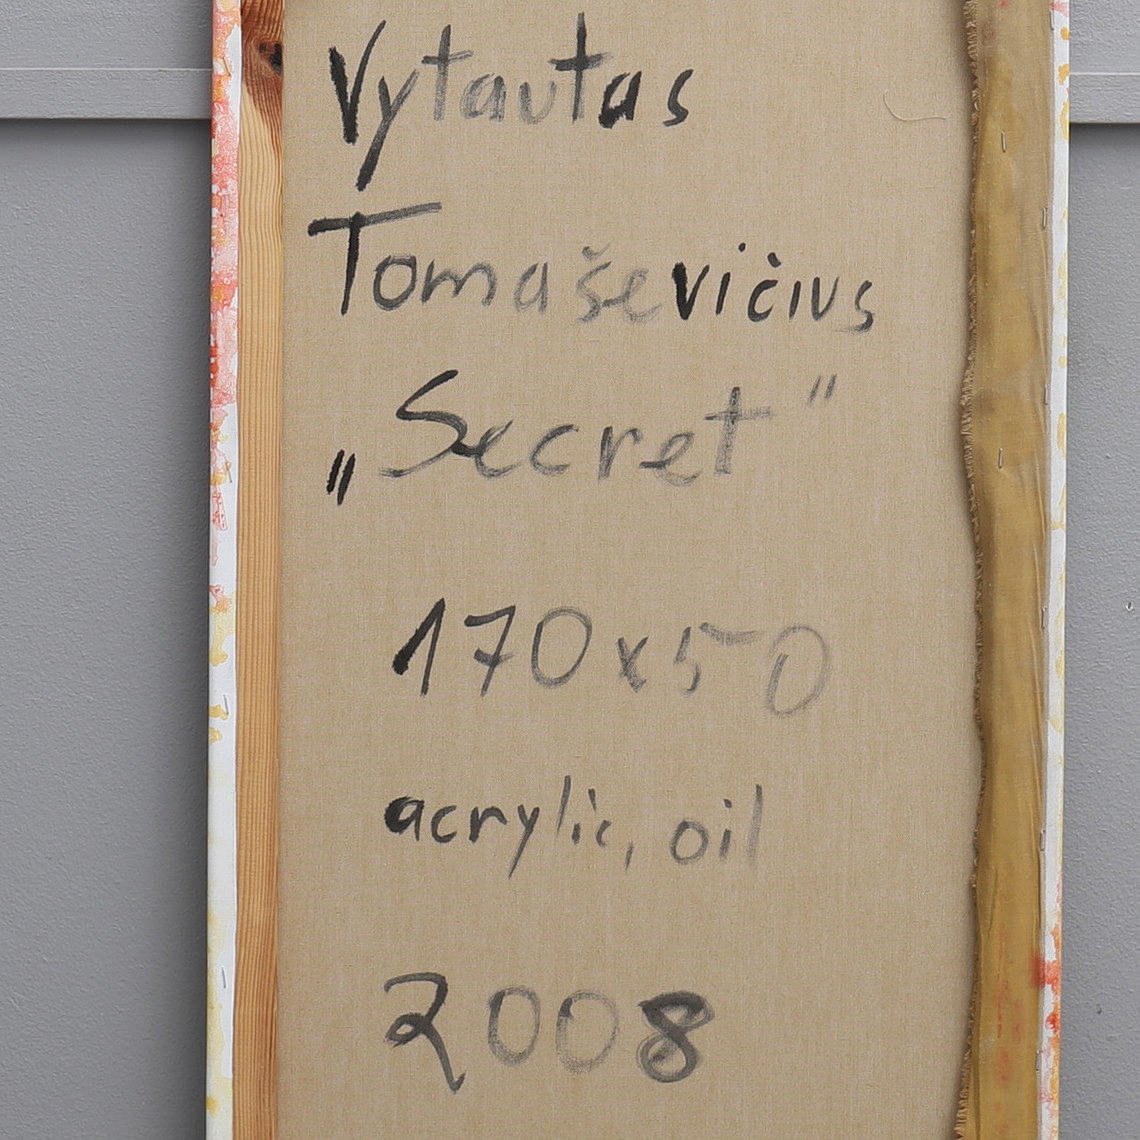 Vytautas
Tomaševičius
„Secret"
170x50
acrylic, oil
2008